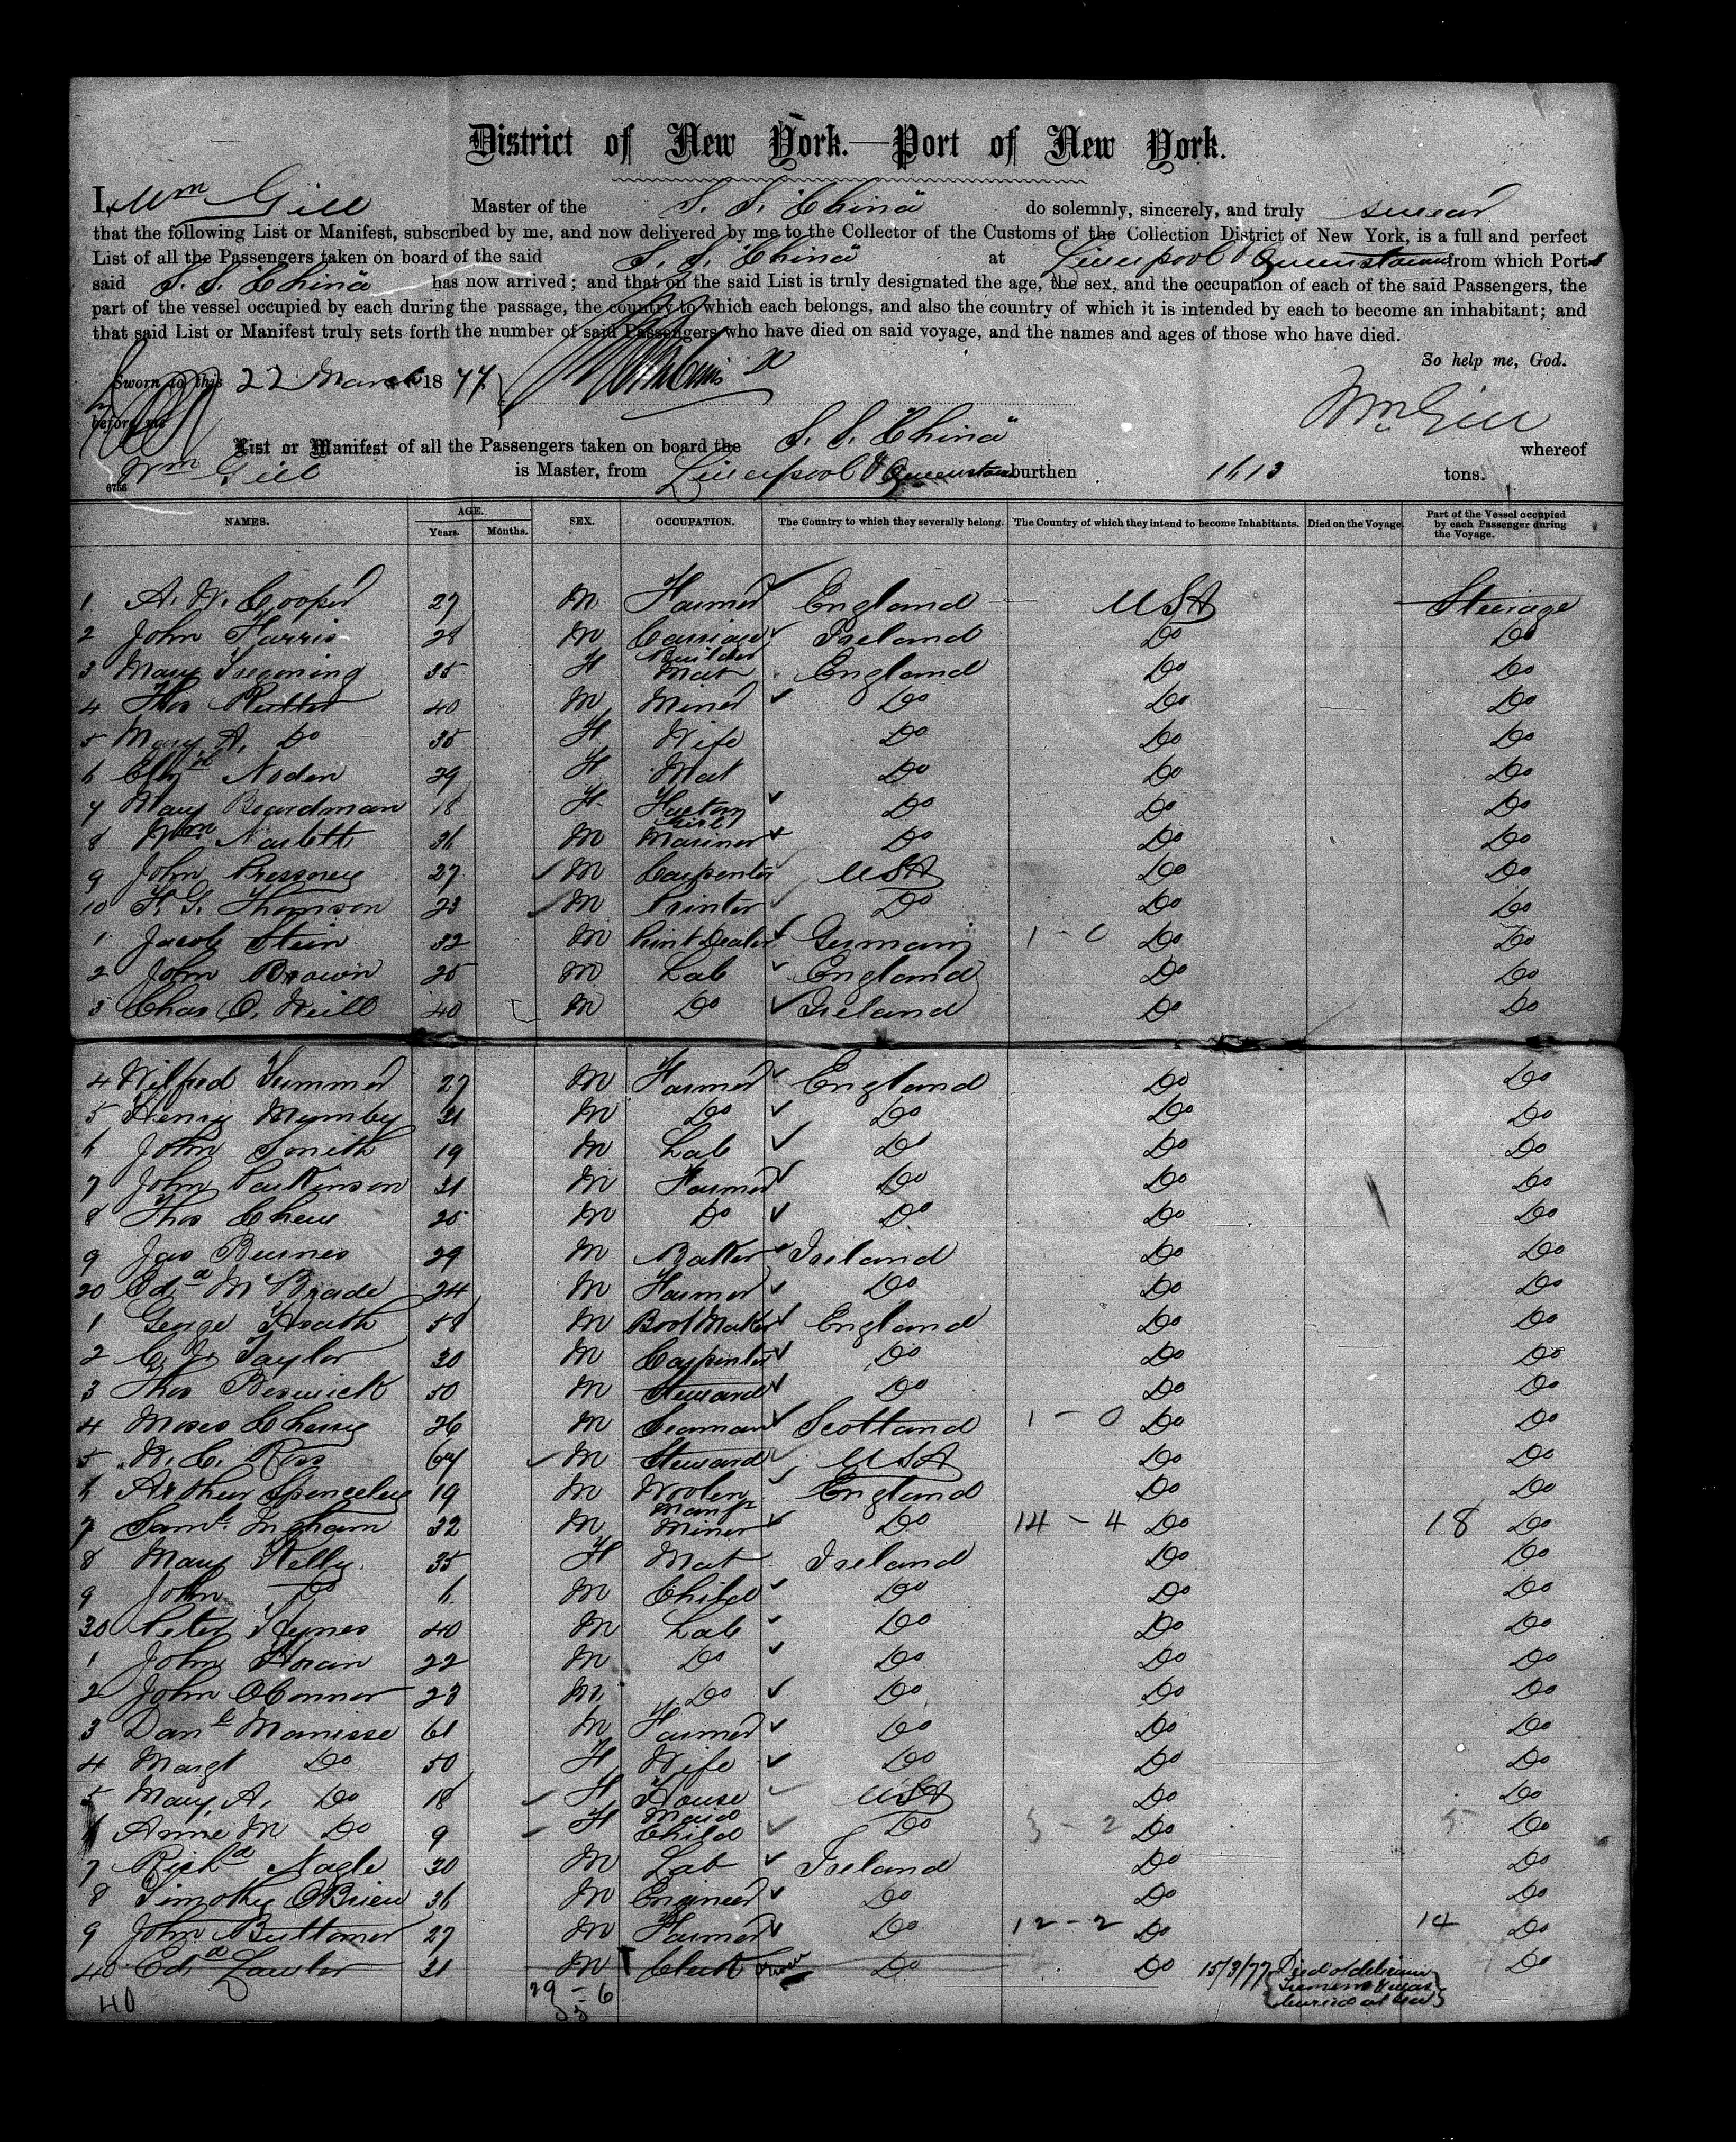 District of New York.—Port of New York.
I, Wm Gill Master of the S. S. "China" do solemnly, sincerely, and truly swear
that the following List or Manifest, subscribed by me, and now delivered by me to the Collector of the Customs of the Collection District of New York, is a full and perfect
List of all the Passengers taken on board of the said S. S. "China" at Liverpool & Queenstown from which Ports
said S. S. "China" has now arrived; and that on the said List is truly designated the age, the sex, and the occupation of each of the said Passengers, the
part of the vessel occupied by each during the passage, the country to which each belongs, and also the country of which it is intended by each to become an inhabitant; and
that said List or Manifest truly sets forth the number of said Passengers who have died on said voyage, and the names and ages of those who have died.
So help me, God.
Sworn to this 22 March 1877
before me
Wm Gill
List or Manifest of all the Passengers taken on board the S. S. "China" whereof
Wm Gill is Master, from Liverpool & Queenstown burthen 1613 tons.
6756
NAMES. AGE. Years. Months. SEX. OCCUPATION. The Country to which they severally belong. The Country of which they intend to become Inhabitants. Died on the Voyage. Part of the Vessel occupied by each Passenger during the Voyage.
1 A. W. Cooper 27 M Farmer England USA Steerage
2 John Harris 28 M Carriage Builder Ireland Do Do
3 Mary Tregoning 35 F Mat England Do Do
4 Thos Rutter 40 M Miner Do Do Do
5 Mary A. Do 35 F Wife Do Do Do
6 Elizth Noden 29 F Mat Do Do Do
7 Mary Boardman 18 F Factory Girl Do Do Do
8 Wm 31 M Mariner Do Do Do
9 John 27 M Carpenter USA Do Do
10 F. G. Thomson 23 M Printer Do Do Do
1 Jacob Stein 32 M Print Dealer Germany 1 - 0 Do Do
2 John Brown 25 M Lab England Do Do
3 Chas O'Neill 40 M Do Ireland Do Do
4 Wilfred 27 M Farmer England Do Do
5 Henry Mumby 31 M Do Do Do Do
6 John Smith 19 M Lab Do Do Do
7 John Parkinson 31 M Farmer Do Do Do
8 Thos Chew 25 M Do Do Do Do
9 Jas Burnes 29 M Baker Ireland Do Do
20 Edd McBrade 24 M Farmer Do Do Do
1 George Heath 58 M Boot Maker England Do Do
2 Taylor 30 M Carpenter Do Do Do
3 Thos Beswick 50 M Steward Do Do Do
4 Moses 26 M Seaman Scotland 1 - 0 Do Do
5 W. C. Ross 64 M Steward USA Do Do
6 Arthur 19 M Woolen Manfr England Do Do
7 Saml Ingham 32 M Miner Do 14 - 4 Do 18 Do
8 Mary Kelly 35 F Mat Ireland Do Do
9 John Do 6 M Child Do Do Do
30 Peter Hynes 40 M Lab Do Do Do
1 John Horan 22 M Do Do Do Do
2 John OConnor 23 M Do Do Do Do
3 Danl Manisse 61 M Farmer Do Do Do
4 Margt Do 50 F Wife Do Do Do
5 Mary A. Do 18 F House Maid USA Do Do
6 Anne M Do 9 F Child Do 3 - 2 Do 5 Do
7 Richd Nagle 30 M Lab Ireland Do Do
8 Timothy OBrien 31 M Engineer Do Do Do
9 John Buttomer 27 M Farmer Do 12 - 2 Do 14 Do
40 Edd Lawler 31 M Clerk Do Do 15/3/77 Died of delirium tremens & was buried at sea Do
40 29 - 6